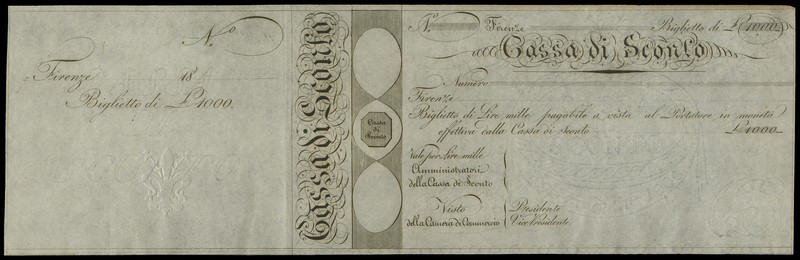 N.º
Firenze 18
Biglietto di £1000.
Cassa di Sconto
Cassa
di
Sconto
N.º Firenze Biglietto di £1000
Cassa di Sconto
Numero
Firenze
Biglietto di Lire mille pagabile a vista al Portatore in moneta
effettiva dalla Cassa di Sconto £1000
Vale per Lire mille
Amministratori
della Cassa di Sconto
Visto
della Camera di Commercio
Presidente
Vice Presidente